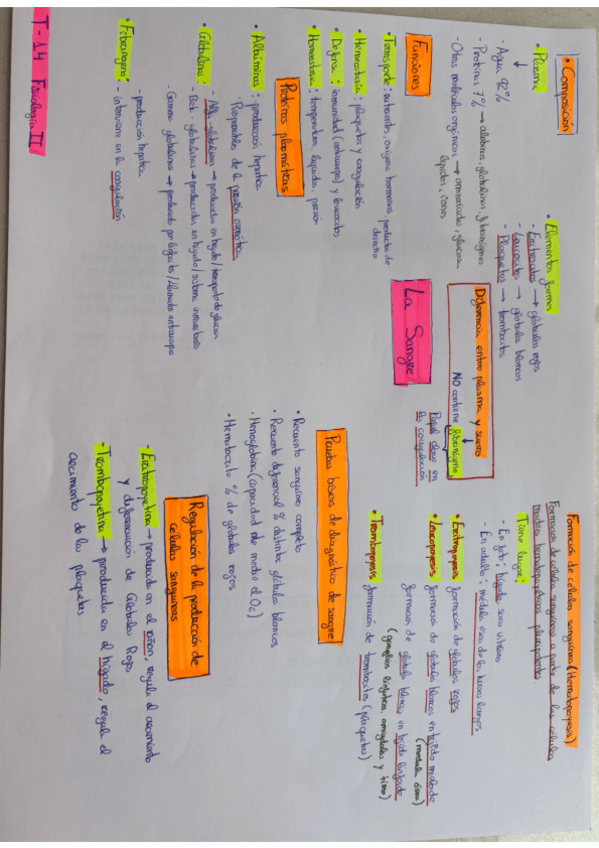 T-14 Fisiología II
La Sangre
• Composición
• Plasma
- Agua 92%
- Proteínas 7% → albúminas, globulinas, fibrinógenos
- Otras moléculas orgánicas, → aminoácidos, glucosa,
lípidos, iones
• Elementos formes
- Eritrocitos → glóbulos rojos
- Leucocitos → glóbulos blancos
- Plaquetas → trombocitos
Diferencia entre plasma y suero
NO contiene fibrinógeno
Papel clave en
la coagulación
Funciones
• Transporte: nutrientes, oxígeno, hormonas, productos de
desecho
• Hemostasia: plaquetas y coagulación
• Defensa: inmunidad (anticuerpos) y leucocitos
• Homeostasia: temperatura, líquidos, presión
Proteínas plasmáticas
• Albúminas: producción hepática
- Responsables de la presión osmótica
• Globulinas:
- Alfa-globulinas → producidas en hígado/transporte de
- Beta-globulinas → producidas en hígado/sistema inmunitario
- Gamma-globulinas → producido por linfocitos/llamados anticuerpos
• Fibrinógeno:
- producción hepática
- intervienen en la coagulación
Formación de células sanguíneas (Hematopoyesis)
Formación de células sanguíneas a partir de las células
madres hematopoyéticas pluripotentes
Tiene lugar:
- En feto; hígado, saco vitelino
- En adulto; médula ósea de los huesos largos
• Eritropoyesis formación de glóbulos rojos
• Leucopoyesis formación de glóbulos blancos en tejido mieloide
(médula ósea)
formación de glóbulo blanco en tejido linfoide
(ganglios linfáticos, amígdalas y timo)
• Trombopoyesis formación de trombocitos (plaquetas)
Pruebas básicas de diagnóstico de sangre
• Recuento sanguíneo completo
• Recuento diferencial % distintos glóbulos blancos
• Hemoglobina (capacidad de medir el O2)
• Hematocrito % de glóbulos rojos
Regulación de la producción de
células sanguíneas
- Eritropoyetina → producida en el riñón, regula el crecimiento
y diferenciación de Glóbulos Rojos
- Trombopoyetina → producida en el hígado, regula el
crecimiento de las plaquetas